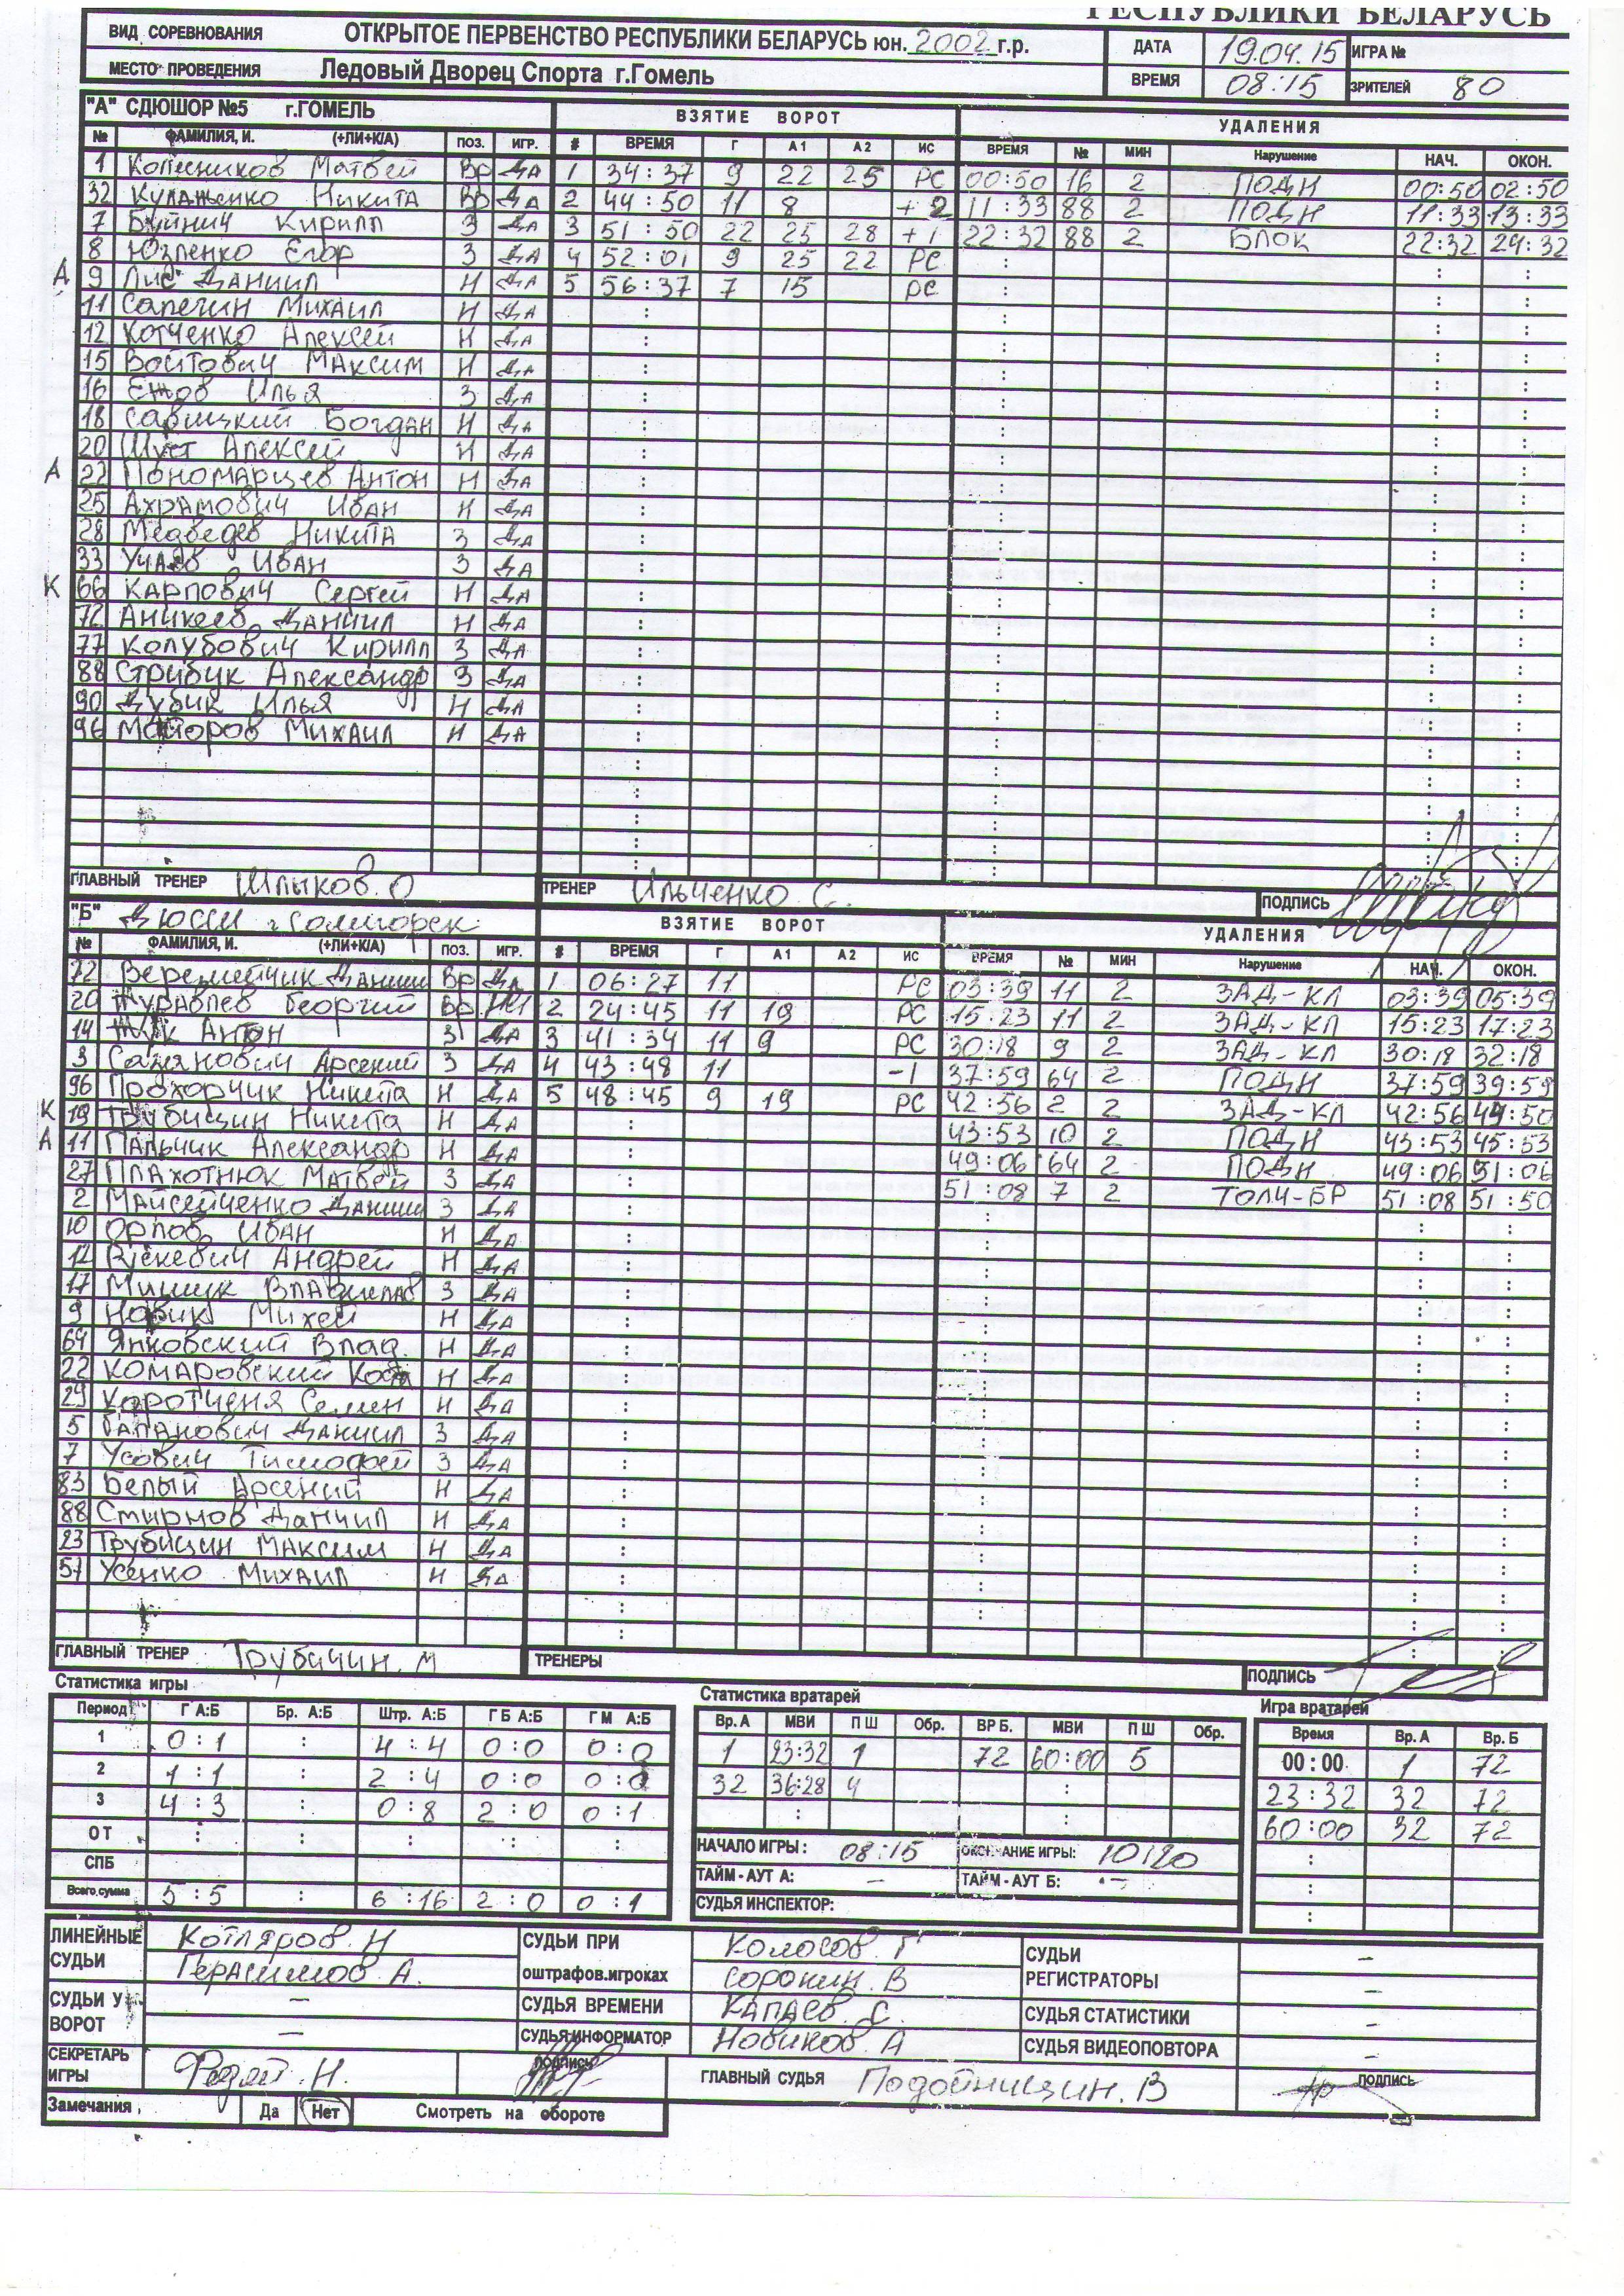 РЕСПУБЛИКИ БЕЛАРУСЬ
ВИД СОРЕВНОВАНИЯ ОТКРЫТОЕ ПЕРВЕНСТВО РЕСПУБЛИКИ БЕЛАРУСЬ юн. 2002 г.р. ДАТА 19.04.15 ИГРА №
МЕСТО ПРОВЕДЕНИЯ Ледовый Дворец Спорта г.Гомель ВРЕМЯ 08:15 ЗРИТЕЛЕЙ 80
"А" СДЮШОР №5 г.ГОМЕЛЬ ВЗЯТИЕ ВОРОТ УДАЛЕНИЯ
№ ФАМИЛИЯ, И. (+ЛИ+К/А) ПОЗ. ИГР. # ВРЕМЯ Г А1 А2 ИС ВРЕМЯ № МИН Нарушение НАЧ. ОКОН.
1 Колесников Матвей Вр ДА 1 34:37 9 22 25 РС 00:50 16 2 ПОДН 00:50 02:50
32 Кулаженко Никита Вр ДА 2 44:50 11 8 +2 11:33 88 2 ПОДН 11:33 13:33
7 Буйнич Кирилл З ДА 3 51:50 22 25 28 +1 22:32 88 2 БЛОК 22:32 24:32
8 Юзленко Егор З ДА 4 52:01 9 25 22 РС : : :
А 9 Лис Даниил Н ДА 5 56:37 7 15 РС : : :
11 Сапегин Михаил Н ДА
12 Котченко Алексей Н ДА
15 Войтович Максим Н ДА
16 Ежов Илья З ДА
18 Савицкий Богдан Н ДА
20 Шуст Алексей Н ДА
А 22 Пономарцев Антон Н ДА
25 Ахрамович Иван Н ДА
28 Медведев Никита З ДА
33 Иван З ДА
К 66 Карпович Сергей Н ДА
72 Аникеев Даниил Н ДА
77 Колубович Кирилл З ДА
88 Стрибук Александр З ДА
90 Дубик Илья Н ДА
96 Майоров Михаил Н ДА
ГЛАВНЫЙ ТРЕНЕР Шлыков. О ТРЕНЕР Ильченко С. ПОДПИСЬ
"Б" ДЮСШ г. Солигорск ВЗЯТИЕ ВОРОТ УДАЛЕНИЯ
№ ФАМИЛИЯ, И. (+ЛИ+К/А) ПОЗ. ИГР. # ВРЕМЯ Г А1 А2 ИС ВРЕМЯ № МИН Нарушение НАЧ. ОКОН.
72 Веремейчик Даниил Вр ДА 1 06:27 11 РС 03:39 11 2 ЗАД-КЛ 03:39 05:39
20 Журавлев Георгий Вр 2 24:45 11 19 РС 15:23 11 2 ЗАД-КЛ 15:23 17:23
14 Жук Антон З ДА 3 41:34 11 9 РС 30:18 9 2 ЗАД-КЛ 30:18 32:18
3 Сажанович Арсений З ДА 4 43:48 11 -1 37:59 64 2 ПОДН 37:59 39:59
96 Прохорчик Никита Н ДА 5 48:45 9 19 РС 42:56 2 2 ЗАД-КЛ 42:56 44:50
К 19 Трубицин Никита Н ДА 43:53 10 2 ПОДН 43:53 45:53
А 11 Пальчик Александр Н ДА 49:06 64 2 ПОДН 49:06 51:06
27 Плахотнюк Матвей З ДА 51:08 7 2 ТОЛЧ-БР 51:08 51:50
2 Майсейченко Даниил З ДА
10 Орлов Иван Н ДА
12 Андрей Н ДА
17 Мишук Владислав З ДА
9 Новик Михей Н ДА
64 Янковский Влад. Н ДА
22 Комаровский Н ДА
29 Коротченя Семен Н ДА
5 Гапанович Даниил З ДА
7 Усович Тимофей З ДА
83 Белый Арсений Н ДА
88 Смирнов Даниил Н ДА
23 Трубицин Максим Н ДА
57 Усенко Михаил Н ДА
ГЛАВНЫЙ ТРЕНЕР Трубичин. М ТРЕНЕРЫ ПОДПИСЬ
Статистика игры Статистика вратарей Игра вратарей
Период Г А:Б Бр. А:Б Штр. А:Б Г Б А:Б Г М А:Б Вр. А МВИ П Ш Обр. ВР Б. МВИ П Ш Обр. Время Вр. А Вр. Б
1 0:1 : 4:4 0:0 0:0 1 23:32 1 72 60:00 5 00:00 1 72
2 1:1 : 2:4 0:0 0:0 32 36:28 4 : 23:32 32 72
3 4:3 : 0:8 2:0 0:1 : : 60:00 32 72
ОТ : : : : : НАЧАЛО ИГРЫ: 08:15 ОКОНЧАНИЕ ИГРЫ: 10:20 :
СПБ ТАЙМ-АУТ А: – ТАЙМ-АУТ Б: – :
Всего,сумма 5:5 : 6:16 2:0 0:1 СУДЬЯ ИНСПЕКТОР: :
ЛИНЕЙНЫЕ СУДЬИ Котляров. Н СУДЬИ ПРИ оштрафов.игроках Колосов. Г СУДЬИ РЕГИСТРАТОРЫ –
Герасимов А. Сорокин. В –
СУДЬИ У ВОРОТ – СУДЬЯ ВРЕМЕНИ Капаев. С. СУДЬЯ СТАТИСТИКИ –
– СУДЬЯ ИНФОРМАТОР Новиков. А СУДЬЯ ВИДЕОПОВТОРА –
СЕКРЕТАРЬ ИГРЫ ПОДПИСЬ ГЛАВНЫЙ СУДЬЯ Подойницин. В ПОДПИСЬ
Замечания Да Нет Смотреть на обороте